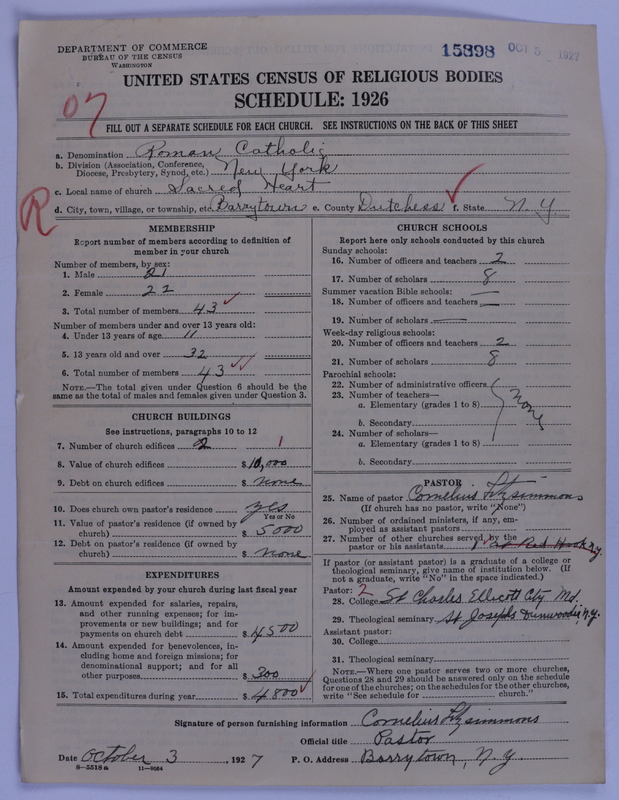 DEPARTMENT OF COMMERCE
BUREAU OF THE CENSUS
WASHINGTON
15398 OCT 5 1927
UNITED STATES CENSUS OF RELIGIOUS BODIES
SCHEDULE: 1926
07
FILL OUT A SEPARATE SCHEDULE FOR EACH CHURCH. SEE INSTRUCTIONS ON THE BACK OF THIS SHEET
a. Denomination Roman Catholic
b. Division (Association, Conference, Diocese, Presbytery, Synod, etc.) New York
c. Local name of church Sacred Heart
R
d. City, town, village, or township, etc. Barrytown e. County Dutchess f. State N. Y
MEMBERSHIP
Report number of members according to definition of
member in your church
Number of members, by sex:
1. Male 21
2. Female 22
3. Total number of members 43
Number of members under and over 13 years old:
4. Under 13 years of age 11
5. 13 years old and over 32
6. Total number of members 43
NOTE.—The total given under Question 6 should be the
same as the total of males and females given under Question 3.
CHURCH BUILDINGS
See instructions, paragraphs 10 to 12
7. Number of church edifices 2 1
8. Value of church edifices $10,000
9. Debt on church edifices $ none
10. Does church own pastor's residence yes
Yes or No
11. Value of pastor's residence (if owned by
church) $ 5000
12. Debt on pastor's residence (if owned by
church) $ none
EXPENDITURES
Amount expended by your church during last fiscal year
13. Amount expended for salaries, repairs,
and other running expenses; for im-
provements or new buildings; and for
payments on church debt $ 4500
14. Amount expended for benevolences, in-
cluding home and foreign missions; for
denominational support; and for all
other purposes $ 300
15. Total expenditures during year $ 4800
CHURCH SCHOOLS
Report here only schools conducted by this church
Sunday schools:
16. Number of officers and teachers 2
17. Number of scholars 8
Summer vacation Bible schools:
18. Number of officers and teachers —
19. Number of scholars —
Week-day religious schools:
20. Number of officers and teachers 2
21. Number of scholars 8
Parochial schools:
22. Number of administrative officers
23. Number of teachers—
a. Elementary (grades 1 to 8) none
b. Secondary
24. Number of scholars—
a. Elementary (grades 1 to 8)
b. Secondary
PASTOR
25. Name of pastor Cornelius Fitzsimmons
(If church has no pastor, write "None")
26. Number of ordained ministers, if any, em-
ployed as assistant pastors
27. Number of other churches served by the
pastor or his assistants 1 at Red Hook N.Y.
If pastor (or assistant pastor) is a graduate of a college or
theological seminary, give name of institution below. (If
not a graduate, write "No" in the space indicated.)
Pastor: 2
28. College St Charles Ellicott City Md.
29. Theological seminary St Josephs Dunwoodie, N.Y.
Assistant pastor:
30. College
31. Theological seminary
NOTE.—Where one pastor serves two or more churches,
Questions 28 and 29 should be answered only on the schedule
for one of the churches; on the schedules for the other churches,
write "See schedule for church."
Signature of person furnishing information Cornelius Fitzsimmons
Official title Pastor
Date October 3, 1927 P. O. Address Barrytown, N. Y
8—5518a 11—9064